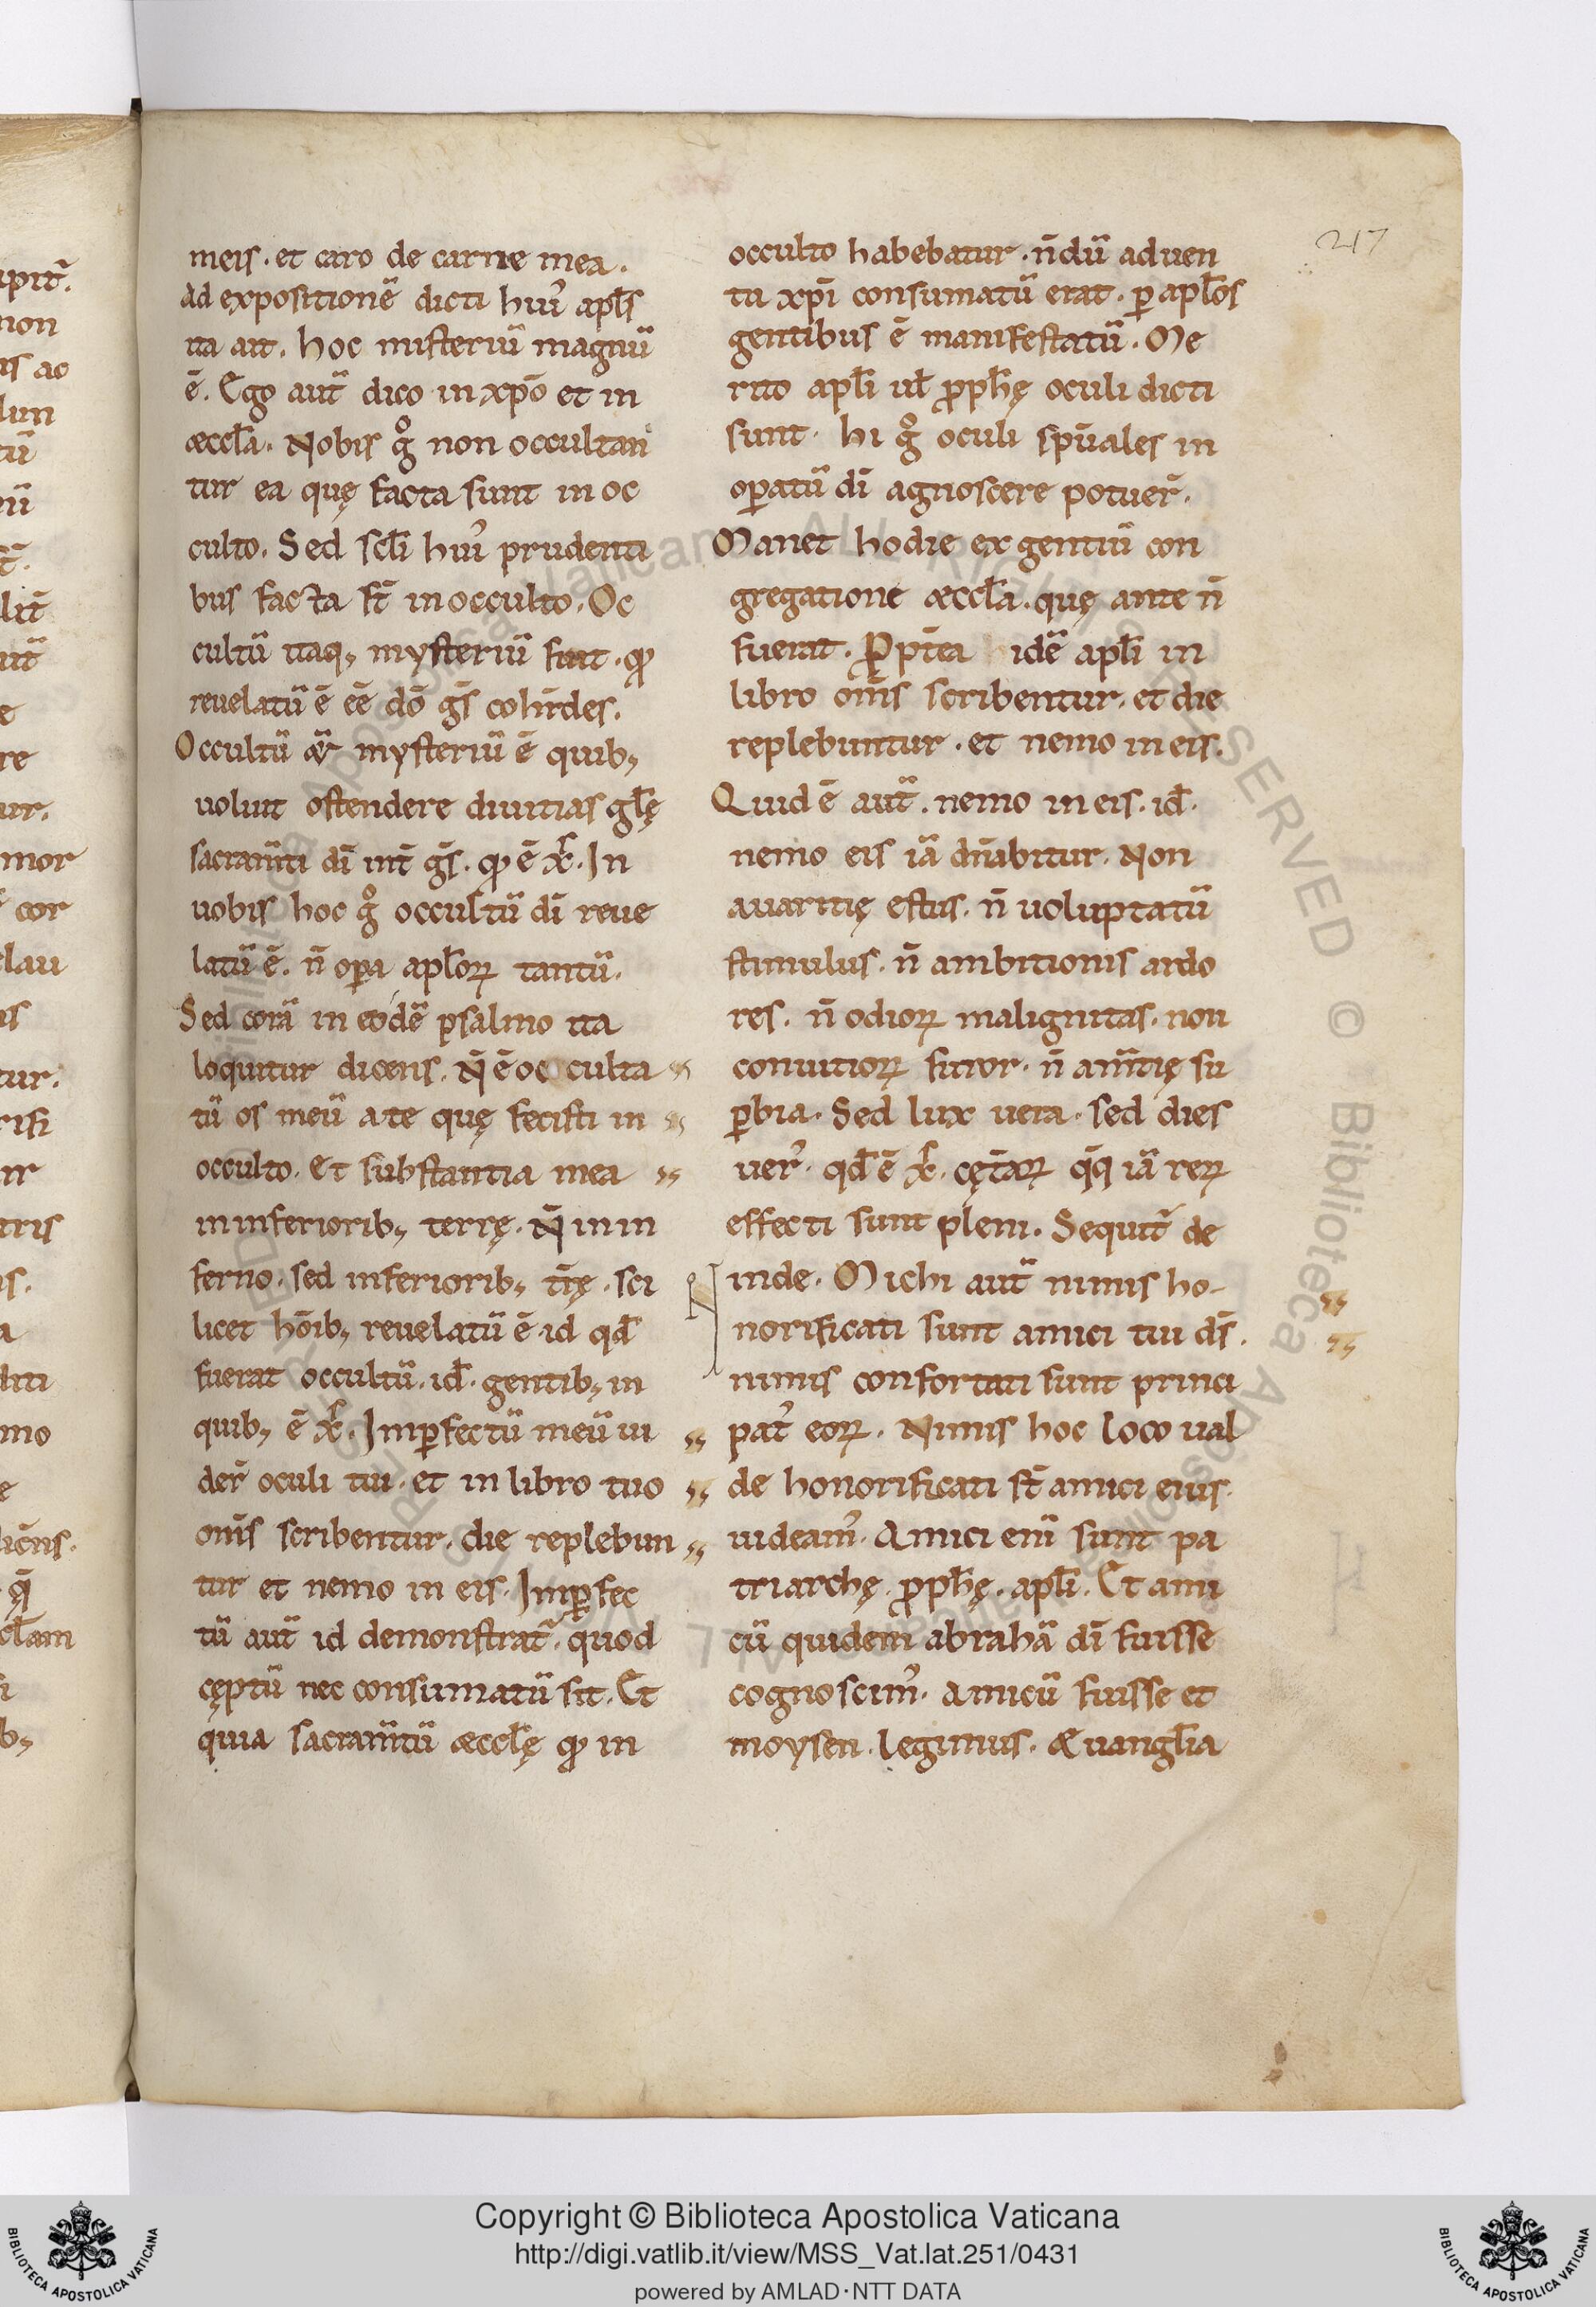 217
meis. et caro de carne mea.
Ad expositionē dicti hui᾽ apl̄s
ita ait. hoc misteriū magnū
ē. Ego aut̄ dico in xpō et in
æccl̄a. Nobis g̊ non occultan
tur ea quę facta sunt in oc
culto. Sed scl̄i hui᾽ prudenti
bus facta st̄ in occulto. Oc
cultū itaq; mysteriū fuit. qđ
reuelatū ē eē dō gs̄ cohr̄des.
Occultū mysteriū ē quib;
uoluit ostendere diuitias gl̄ę
sacram̄ti dī int̄ gs̄. qđ ē x̄. In
uobis hoc g̊ occultū dī reue
latū ē. n̄ opa apl̄oꝝ tantū.
Sed corā in eodē psalmo ita
loquitur dicens. N̄ ē occulta
tū os meū a te quę fecisti in
occulto. Et substantia mea
in inferiorib; terrę. N̄ in in
ferno. sed inferiorib; tr̄ę. sci
licet hōib; reuelatū ē id qđ
fuerat occultū. id̄. gentib; in
quib; ē x̄. Imꝑfectū meū ui
der̄ oculi tui. et in libro tuo
om̄s scribentur. die replebun
tur et nemo in eis. Imꝑfec
tū aut̄ id demonstrat᾽. quod
cęptū nec consumatū sit. Et
quia sacram̄tū æccl̄ę qđ in
occulto habebatur. n̄dū aduen
tu xpī consumatū erat. ꝑ apl̄os
gentibus ē manifestatū. Me
rito apl̄i ul̄ ꝓph̄ę oculi dicti
sunt. hi g̊ oculi spūales in
oꝑatū dī agnoscere potuer̄.
Manet hodie ex gentiū con
gregatione æccl̄a. quę ante n̄
fuerat. Ꝓpt̄ea idē apl̄i in
libro om̄s scribentur. et die
replebuntur. et nemo in eis.
Quid ē aut̄. nemo in eis. id̄.
nemo eis iā dn̄abitur. Non
auaritię estus. n̄ uoluptatū
stimulus. n̄ ambitionis ardo
res. n̄ odioꝝ malignitas. non
conuitioꝝ furor. n̄ am̄tię su
ꝑbia. Sed lux uera. sed dies
uer᾽. qđ ē x̄. cęt̄aꝝ q̄q iā reꝝ
effecti sunt pleni. Sequit᾽ de
inde. Michi aut̄ nimis ho-
norificati sunt amici tui ds̄.
nimis confortati sunt princi
pat᾽ eoꝝ. Nimis hoc loco ual
de honorificati st̄ amici eius.
uideam᾽. Amici eni sunt pa
triarchę. ꝓph̄ę. apl̄i. Et ami
cū quidem abrahā dī fuisse
cognoscim᾽. Amicū fuisse et
moysen. legimus. Æuangl̄ia
Copyright © Biblioteca Apostolica Vaticana
http://digi.vatlib.it/view/MSS_Vat.lat.251/0431
powered by AMLAD·NTT DATA
BIBLIOTECA APOSTOLICA VATICANA
BIBLIOTECA APOSTOLICA VATICANA